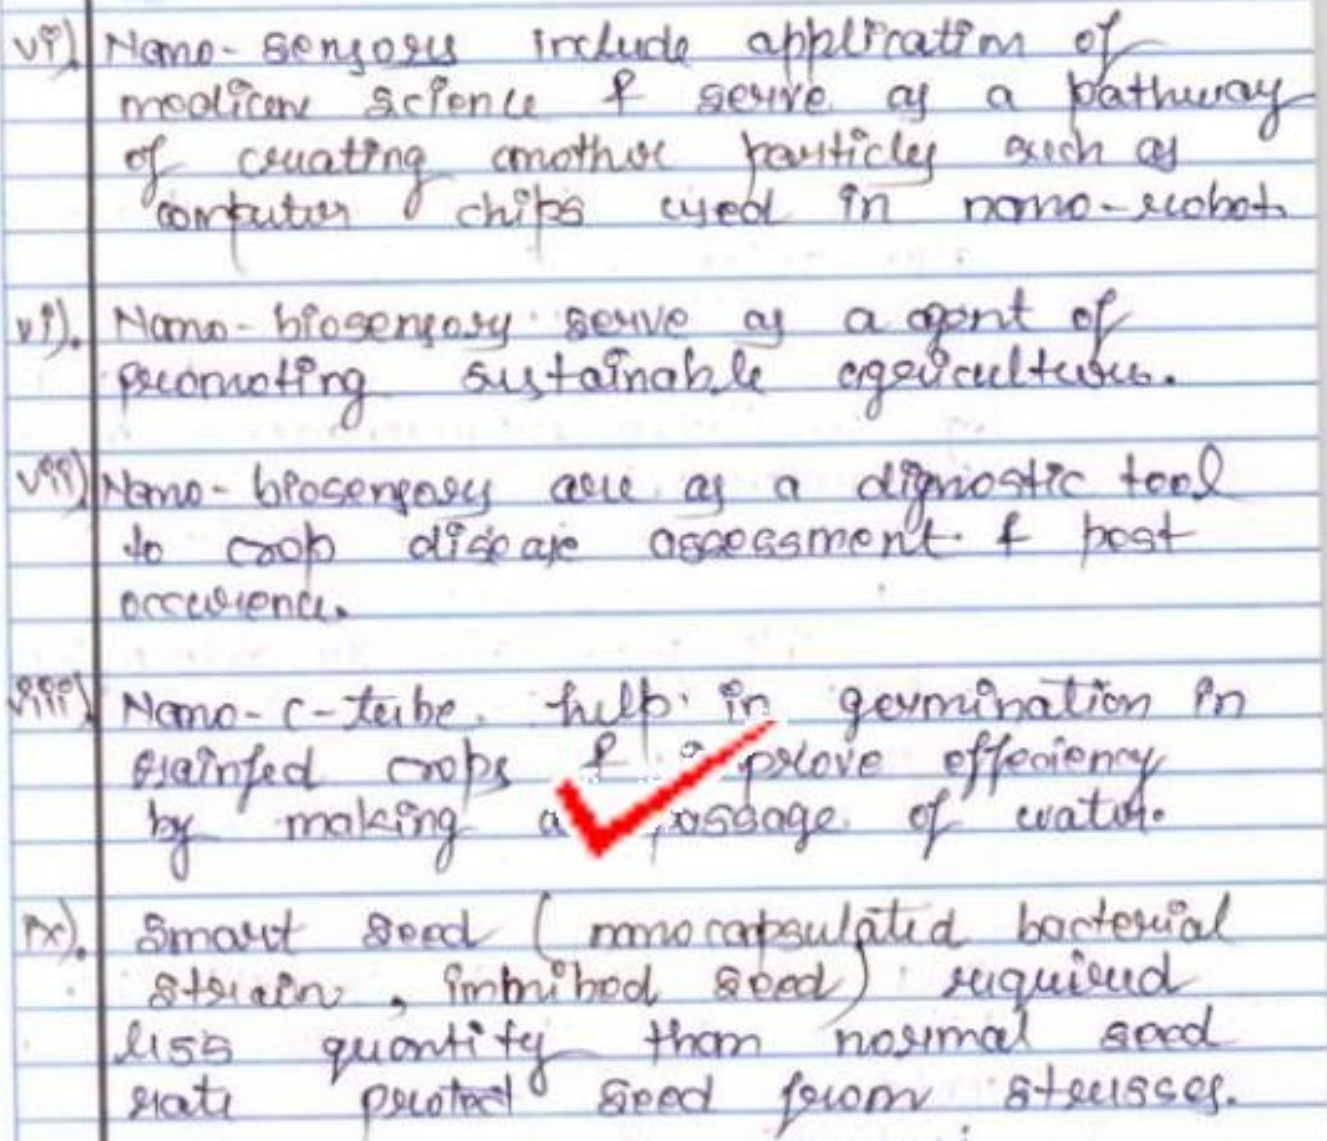 vi) Nano-sensors include application of
medicene science & serve as a pathway
of creating another particles such as
computer chips used in nano-robot.
vi). Nano-biosensors serve as a agent of
promoting sustainable agriculture.
vii) Nano-biosensors are as a dignostic tool
to crop disease assessment & pest
occurence.
viii) Nano-C-tube help in germination in
rainfed crops & prove effeciency
by making a passage of water.
ix). Smart seed (nanocapsulated bacterial
strain, imbribed seed) required
less quantity than normal seed
rate protect seed from stresses.